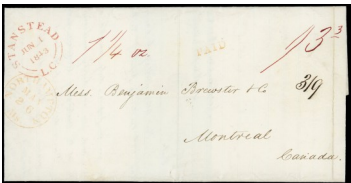 STANSTEAD
JUN
1843
L.C.
1 1/4 oz.
PAID
3/9
Mess. Benjamin Brewster & Co
Montreal
Canada.